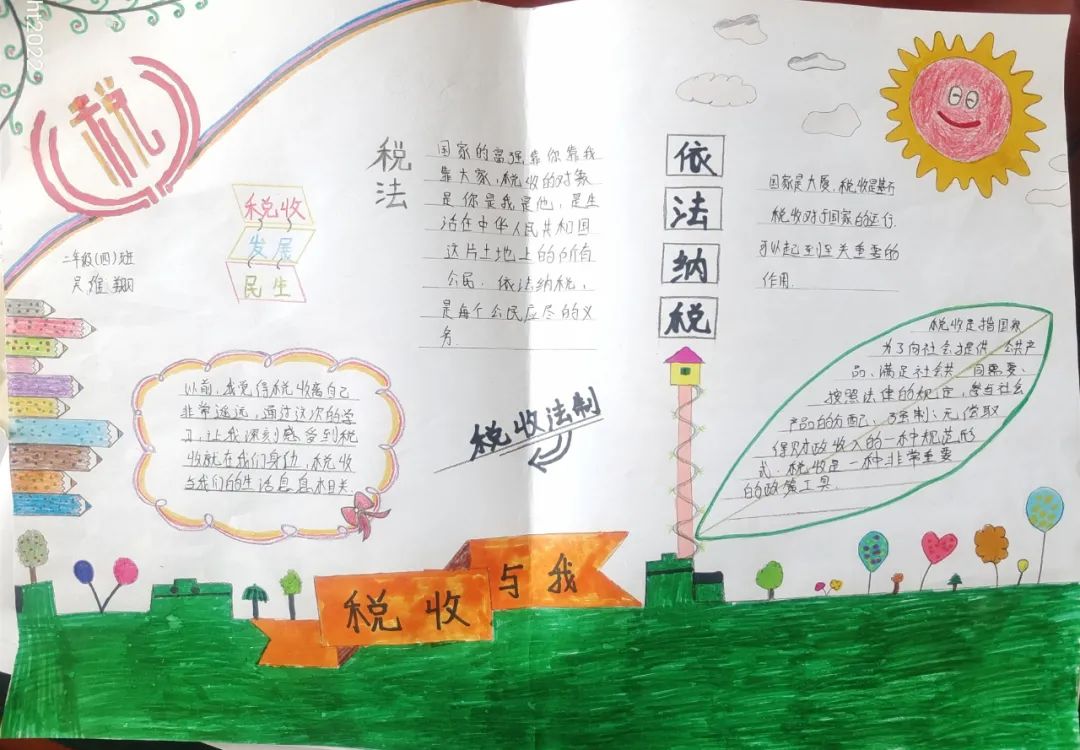 ht2022
税
税收
发展
民生
二年级(四)班
税法
国家的富强,靠你靠我
靠大家,税收的对象
是你是我是他,是生
活在中华人民共和国
这片土地上的所有
公民.依法纳税,
是每个公民应尽的义
务
依
法
纳
税
国家是大厦,税收是基石
税收对于国家的运行.
可以起到至关重要的
作用.
以前,我觉得税收离自己
非常遥远,通过这次的学
习,让我深刻感受到税
收就在我们身边,税收
与我们的生活息息相关
税收法制
税收是指国家
为了向社会提供公共产
品、满足社会共同需要、
按照法律的规定,参与社会
产品的分配、强制、无偿取
得财政收入的一种规范形
式.税收是一种非常重要
的政策工具.
税收与我